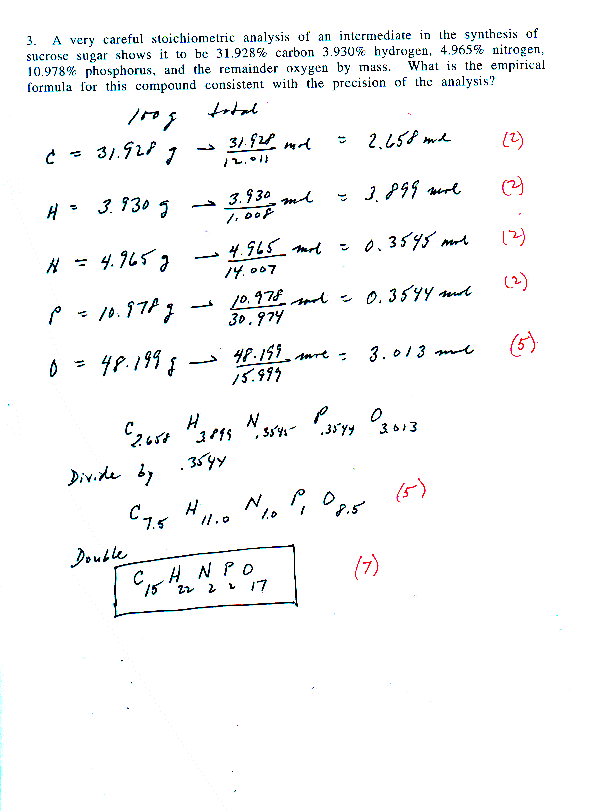 3. A very careful stoichiometric analysis of an intermediate in the synthesis of
sucrose sugar shows it to be 31.928% carbon 3.930% hydrogen, 4.965% nitrogen,
10.978% phosphorus, and the remainder oxygen by mass. What is the empirical
formula for this compound consistent with the precision of the analysis?
100 g total
C = 31.928 g → 31.928/12.011 mol = 2.658 mol (2)
H = 3.930 g → 3.930/1.008 mol = 3.899 mol (2)
N = 4.965 g → 4.965/14.007 mol = 0.3545 mol (2)
P = 10.978 g → 10.978/30.974 mol = 0.3544 mol (2)
O = 48.199 g → 48.199/15.999 mole = 3.013 mol (5)
C2.658 H3.899 N.3545 P.3544 O3.013
Divide by .3544
C7.5 H11.0 N1.0 P1 O8.5 (5)
Double
C15 H22 N2 P2 O17 (7)